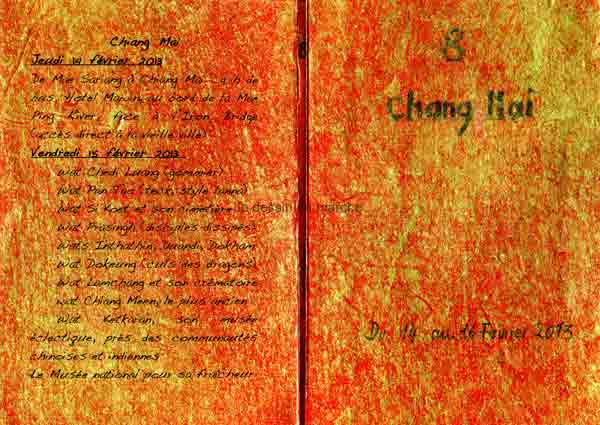 Chiang Mai
Jeudi 14 février 2013
De Mae Sariang à Chiang Mai - 4 h de
bus. Hotel au bord de la Mae
Ping River, face à l'Iron Bridge
(accès direct à la vieille ville)
Vendredi 15 février 2013
Wat Chedi Luang (gommier)
Wat Pan Tao (teck, style lanna)
Wat Si Koet et son cimetière
Wat Prasingh (disciples dissipés)
Wats Inthathin, Duandi, Dokham
Wat Dokeung (culs des dragons)
Wat Lamchang et son crématoire
Wat Chiang Menn, le plus ancien
Wat Ketkaran, son musée
éclectique, près des communautés
chinoises et indiennes
Le Musée national pour sa fraîcheur
le dessin en marche
8
Chang Mai
Du 14 au 16 Février 2013
8